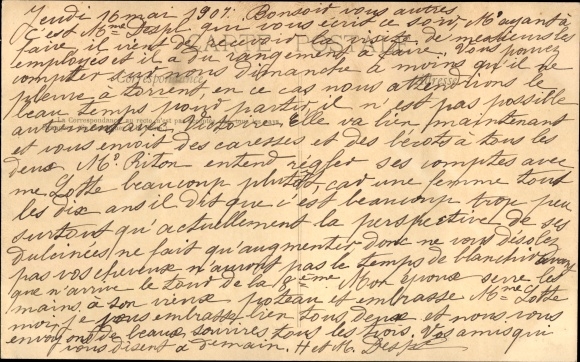 Jeudi 16 mai 1907. Bonsoir vous autres
C'est Mme Despl. qui vous écrit ce soir, Mr ayant à
faire il vient de recevoir la visite de messieurs les
employés et il a du rangement à faire. Vous pouvez
compter sur nous dimanche à moins qu'il ne
pleuve à torrent, en ce cas nous attendrions le
beau temps pour partir il n'est pas possible
autrement avec Victoire. Elle va bien maintenant
et vous envoit des caresses et des bécots à tous les
deux. Mr Riton entend régler ses comptes avec
me Lotte beaucoup plutôt, car une femme tous
les dix ans il dit que c'est beaucoup trop peu
surtout qu'actuellement la perspective de ses
dulcinées ne fait qu'augmenter donc ne vous désolez
pas vos cheveux n'auront pas le temps de blanchir avant
que n'arrive le tour de la 8ème Mon époux serre les
mains à son vieux poteau et embrasse Mme Lotte
moi je vous embrasse bien tous deux et nous vous
envoyons de beaux sourires tous les trois. Vos amis qui
vous disent à demain. H et M. Despl
CARTE POSTALE
Correspondance
Adresse
La Correspondance au recto n'est pas